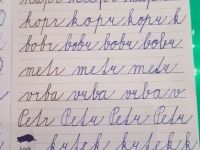 kopr kopr kopr k
bobr bobr bobr bobr
metr metr metr
vrba vrba vrba v
Petr Petr Petr Petr
krtek krtek k